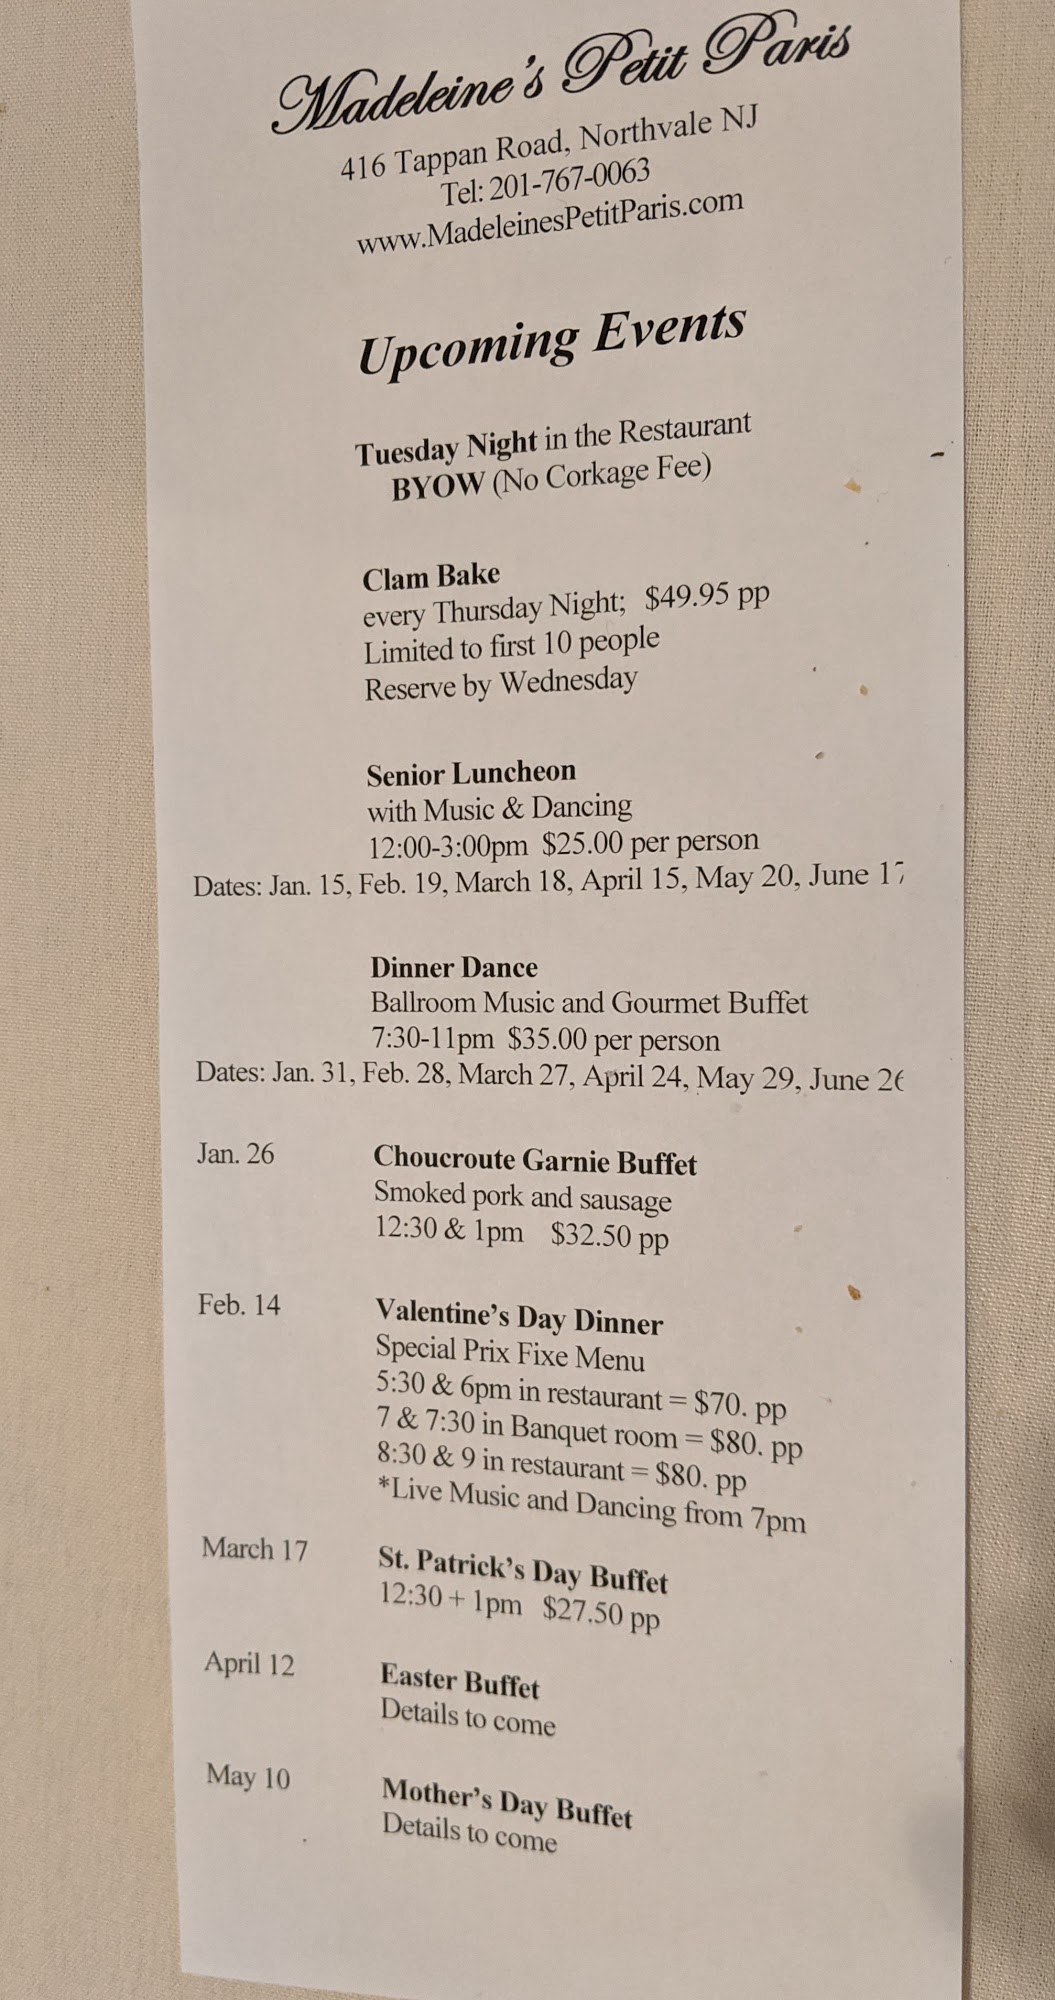 Madeleine's Petit Paris
416 Tappan Road, Northvale NJ
Tel: 201-767-0063
www.MadeleinesPetitParis.com
Upcoming Events
Tuesday Night in the Restaurant
BYOW (No Corkage Fee)
Clam Bake
every Thursday Night; $49.95 pp
Limited to first 10 people
Reserve by Wednesday
Senior Luncheon
with Music & Dancing
12:00-3:00pm $25.00 per person
Dates: Jan. 15, Feb. 19, March 18, April 15, May 20, June 17
Dinner Dance
Ballroom Music and Gourmet Buffet
7:30-11pm $35.00 per person
Dates: Jan. 31, Feb. 28, March 27, April 24, May 29, June 26
Jan. 26 Choucroute Garnie Buffet
Smoked pork and sausage
12:30 & 1pm $32.50 pp
Feb. 14 Valentine's Day Dinner
Special Prix Fixe Menu
5:30 & 6pm in restaurant = $70. pp
7 & 7:30 in Banquet room = $80. pp
8:30 & 9 in restaurant = $80. pp
*Live Music and Dancing from 7pm
March 17 St. Patrick's Day Buffet
12:30 + 1pm $27.50 pp
April 12 Easter Buffet
Details to come
May 10 Mother's Day Buffet
Details to come